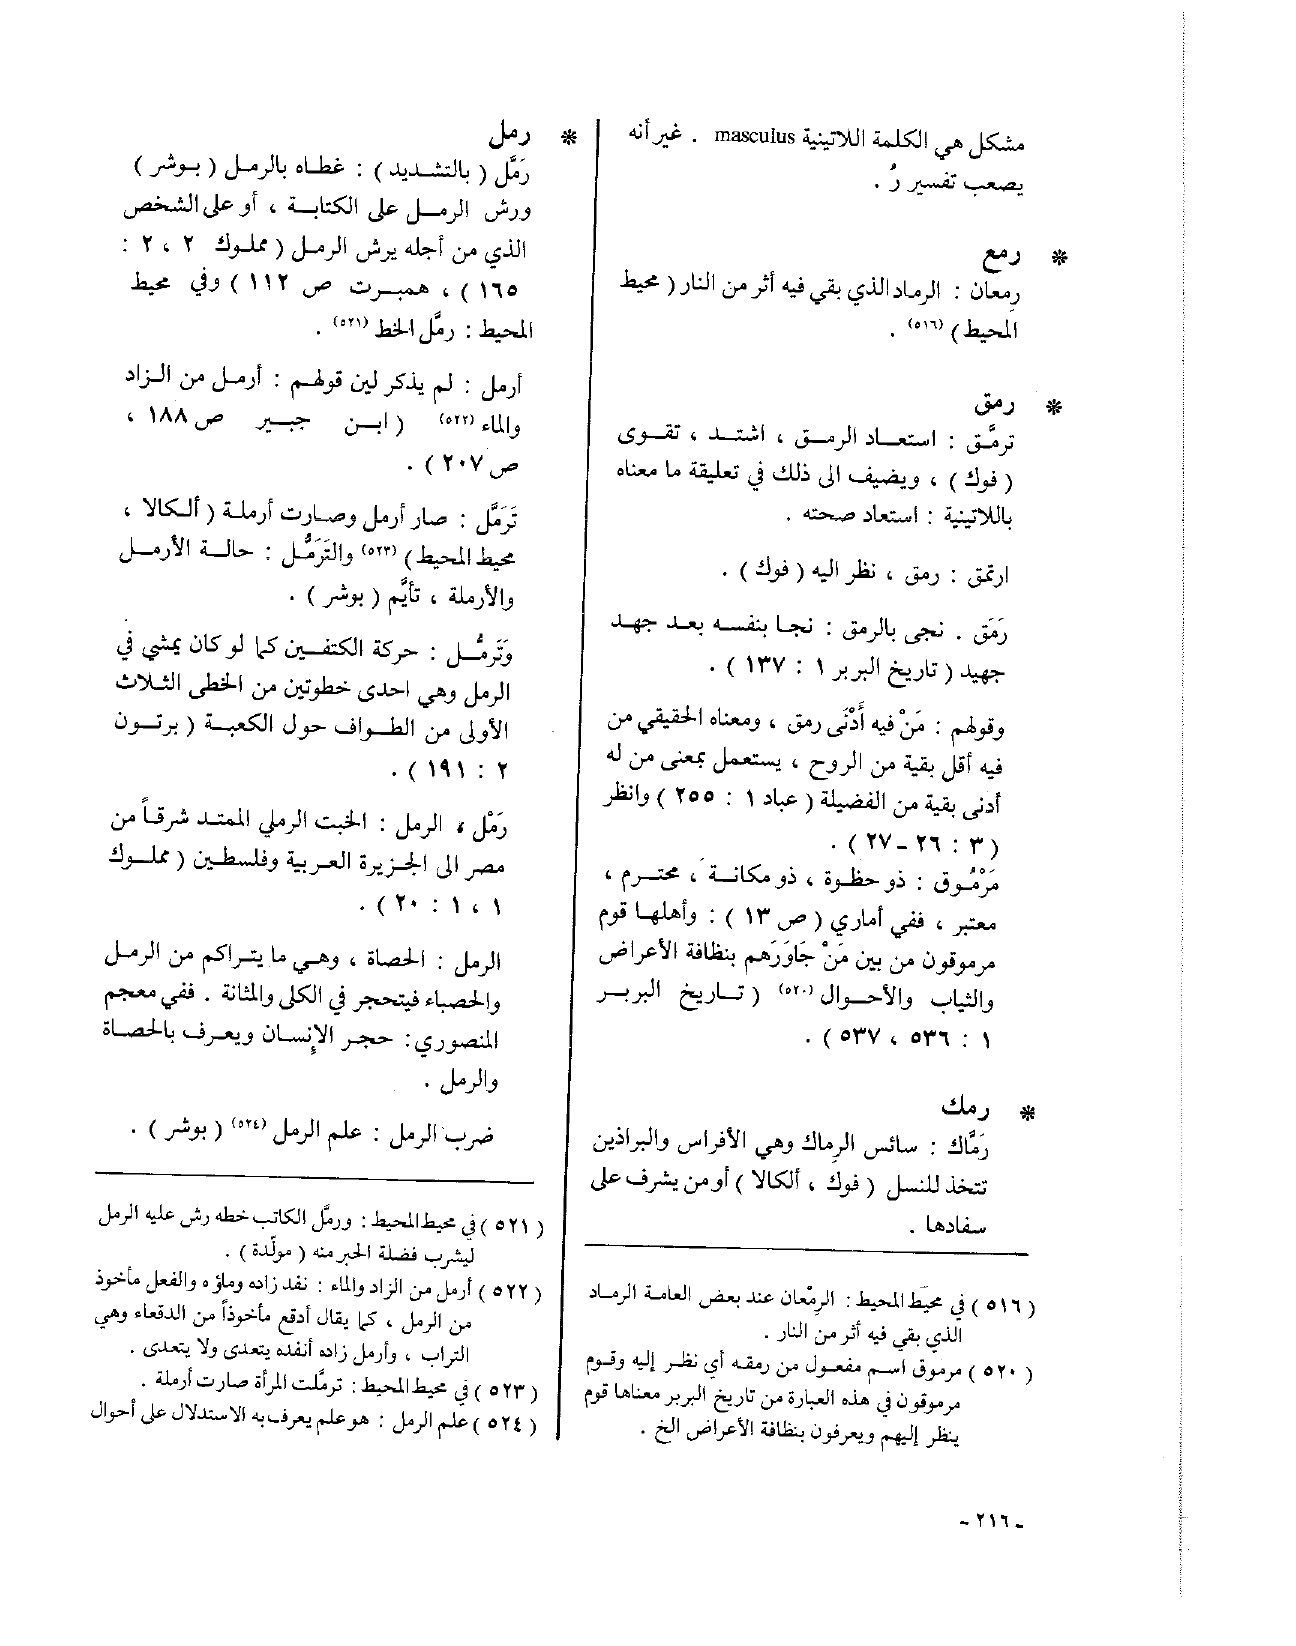 مشكل هي الكلمة اللاتينية masculus . غير أنه
يصعب تفسير رُ .
* رمع
رمعان : الرماد الذي بقي فيه أثر من النار ( محيط
المحيط ) (٥١٦) .
* رمق
ترمَّق : استعاد الرمق ، اشتد ، تقوى
( فوك ) ، ويضيف الى ذلك في تعليقة ما معناه
باللاتينية : استعاد صحته .
ارتمق : رمق ، نظر اليه ( فوك ) .
رَمَق . نجى بالرمق : نجا بنفسه بعد جهد
جهيد ( تاريخ البربر ١ : ١٣٧ ) .
وقولهم : مَنْ فيه أَدْنَى رمق ، ومعناه الحقيقي من
فيه أقل بقية من الروح ، يستعمل بمعنى من له
أدنى بقية من الفضيلة ( عباد ١ : ٢٥٥ ) وانظر
( ٣ : ٢٦ - ٢٧ ) .
مَرْمُوق : ذو حظوة ، ذو مكانة ، محترم ،
معتبر ، ففي أماري ( ص ١٣ ) : وأهلها قوم
مرموقون من بين مَنْ جَاوَرَهم بنظافة الأعراض
والثياب والأحوال (٥٢٠) ( تاريخ البربر
١ : ٥٣٦ ، ٥٣٧ ) .
* رمك
رَمَّاك : سائس الرماك وهي الأفراس والبراذين
تتخذ للنسل ( فوك ، ألكالا ) أو من يشرف على
سفادها .
( ٥١٦ ) في محيط المحيط : الرمْعان عند بعض العامة الرماد
الذي بقي فيه أثر من النار .
( ٥٢٠ ) مرموق اسم مفعول من رمقه أي نظر إليه وقوم
مرموقون في هذه العبارة من تاريخ البربر معناها قوم
ينظر إليهم ويعرفون بنظافة الأعراض الخ .
* رمل
رَمَّل ( بالتشديد ) : غطاه بالرمل ( بوشر )
ورش الرمل على الكتابة ، أو على الشخص
الذي من أجله يرش الرمل ( مملوك ٢ ، ٢ :
١٦٥ ) ، همبرت ص ١١٢ ) وفي محيط
المحيط : رمَّل الخط (٥٢١) .
أرمل : لم يذكر لين قولهم : أرمل من الزاد
والماء (٥٢٢) ( ابن جبير ص ١٨٨ ،
ص ٢٠٧ ) .
تَرَمَّل : صار أرمل وصارت أرملة ( ألكالا ،
محيط المحيط ) (٥٢٣) والتَرَمُّل : حالة الأرمل
والأرملة ، تأيُّم ( بوشر ) .
وَتَرمُّل : حركة الكتفين كما لو كان يمشي في
الرمل وهي احدى خطوتين من الخطى الثلاث
الأولى من الطواف حول الكعبة ( برتون
٢ : ١٩١ ) .
رَمْل ، الرمل : الخبت الرملي الممتد شرقاً من
مصر الى الجزيرة العربية وفلسطين ( مملوك
١ ، ١ : ٢٠ ) .
الرمل : الحصاة ، وهي ما يتراكم من الرمل
والحصباء فيتحجر في الكلى والمثانة . ففي معجم
المنصوري : حجر الإنسان ويعرف بالحصاة
والرمل .
ضرب الرمل : علم الرمل (٥٢٤) ( بوشر ) .
( ٥٢١ ) في محيط المحيط : ورمَّل الكاتب خطه رش عليه الرمل
ليشرب فضلة الحبر منه ( مولّدة ) .
( ٥٢٢ ) أرمل من الزاد والماء : نفد زاده وماؤه والفعل مأخوذ
من الرمل ، كما يقال أدقع مأخوذاً من الدقعاء وهي
التراب ، وأرمل زاده أنفده يتعدى ولا يتعدى .
( ٥٢٣ ) في محيط المحيط : ترملت المرأة صارت أرملة .
( ٥٢٤ ) علم الرمل : هو علم يعرف به الاستدلال على أحوال
- ٢١٦ -